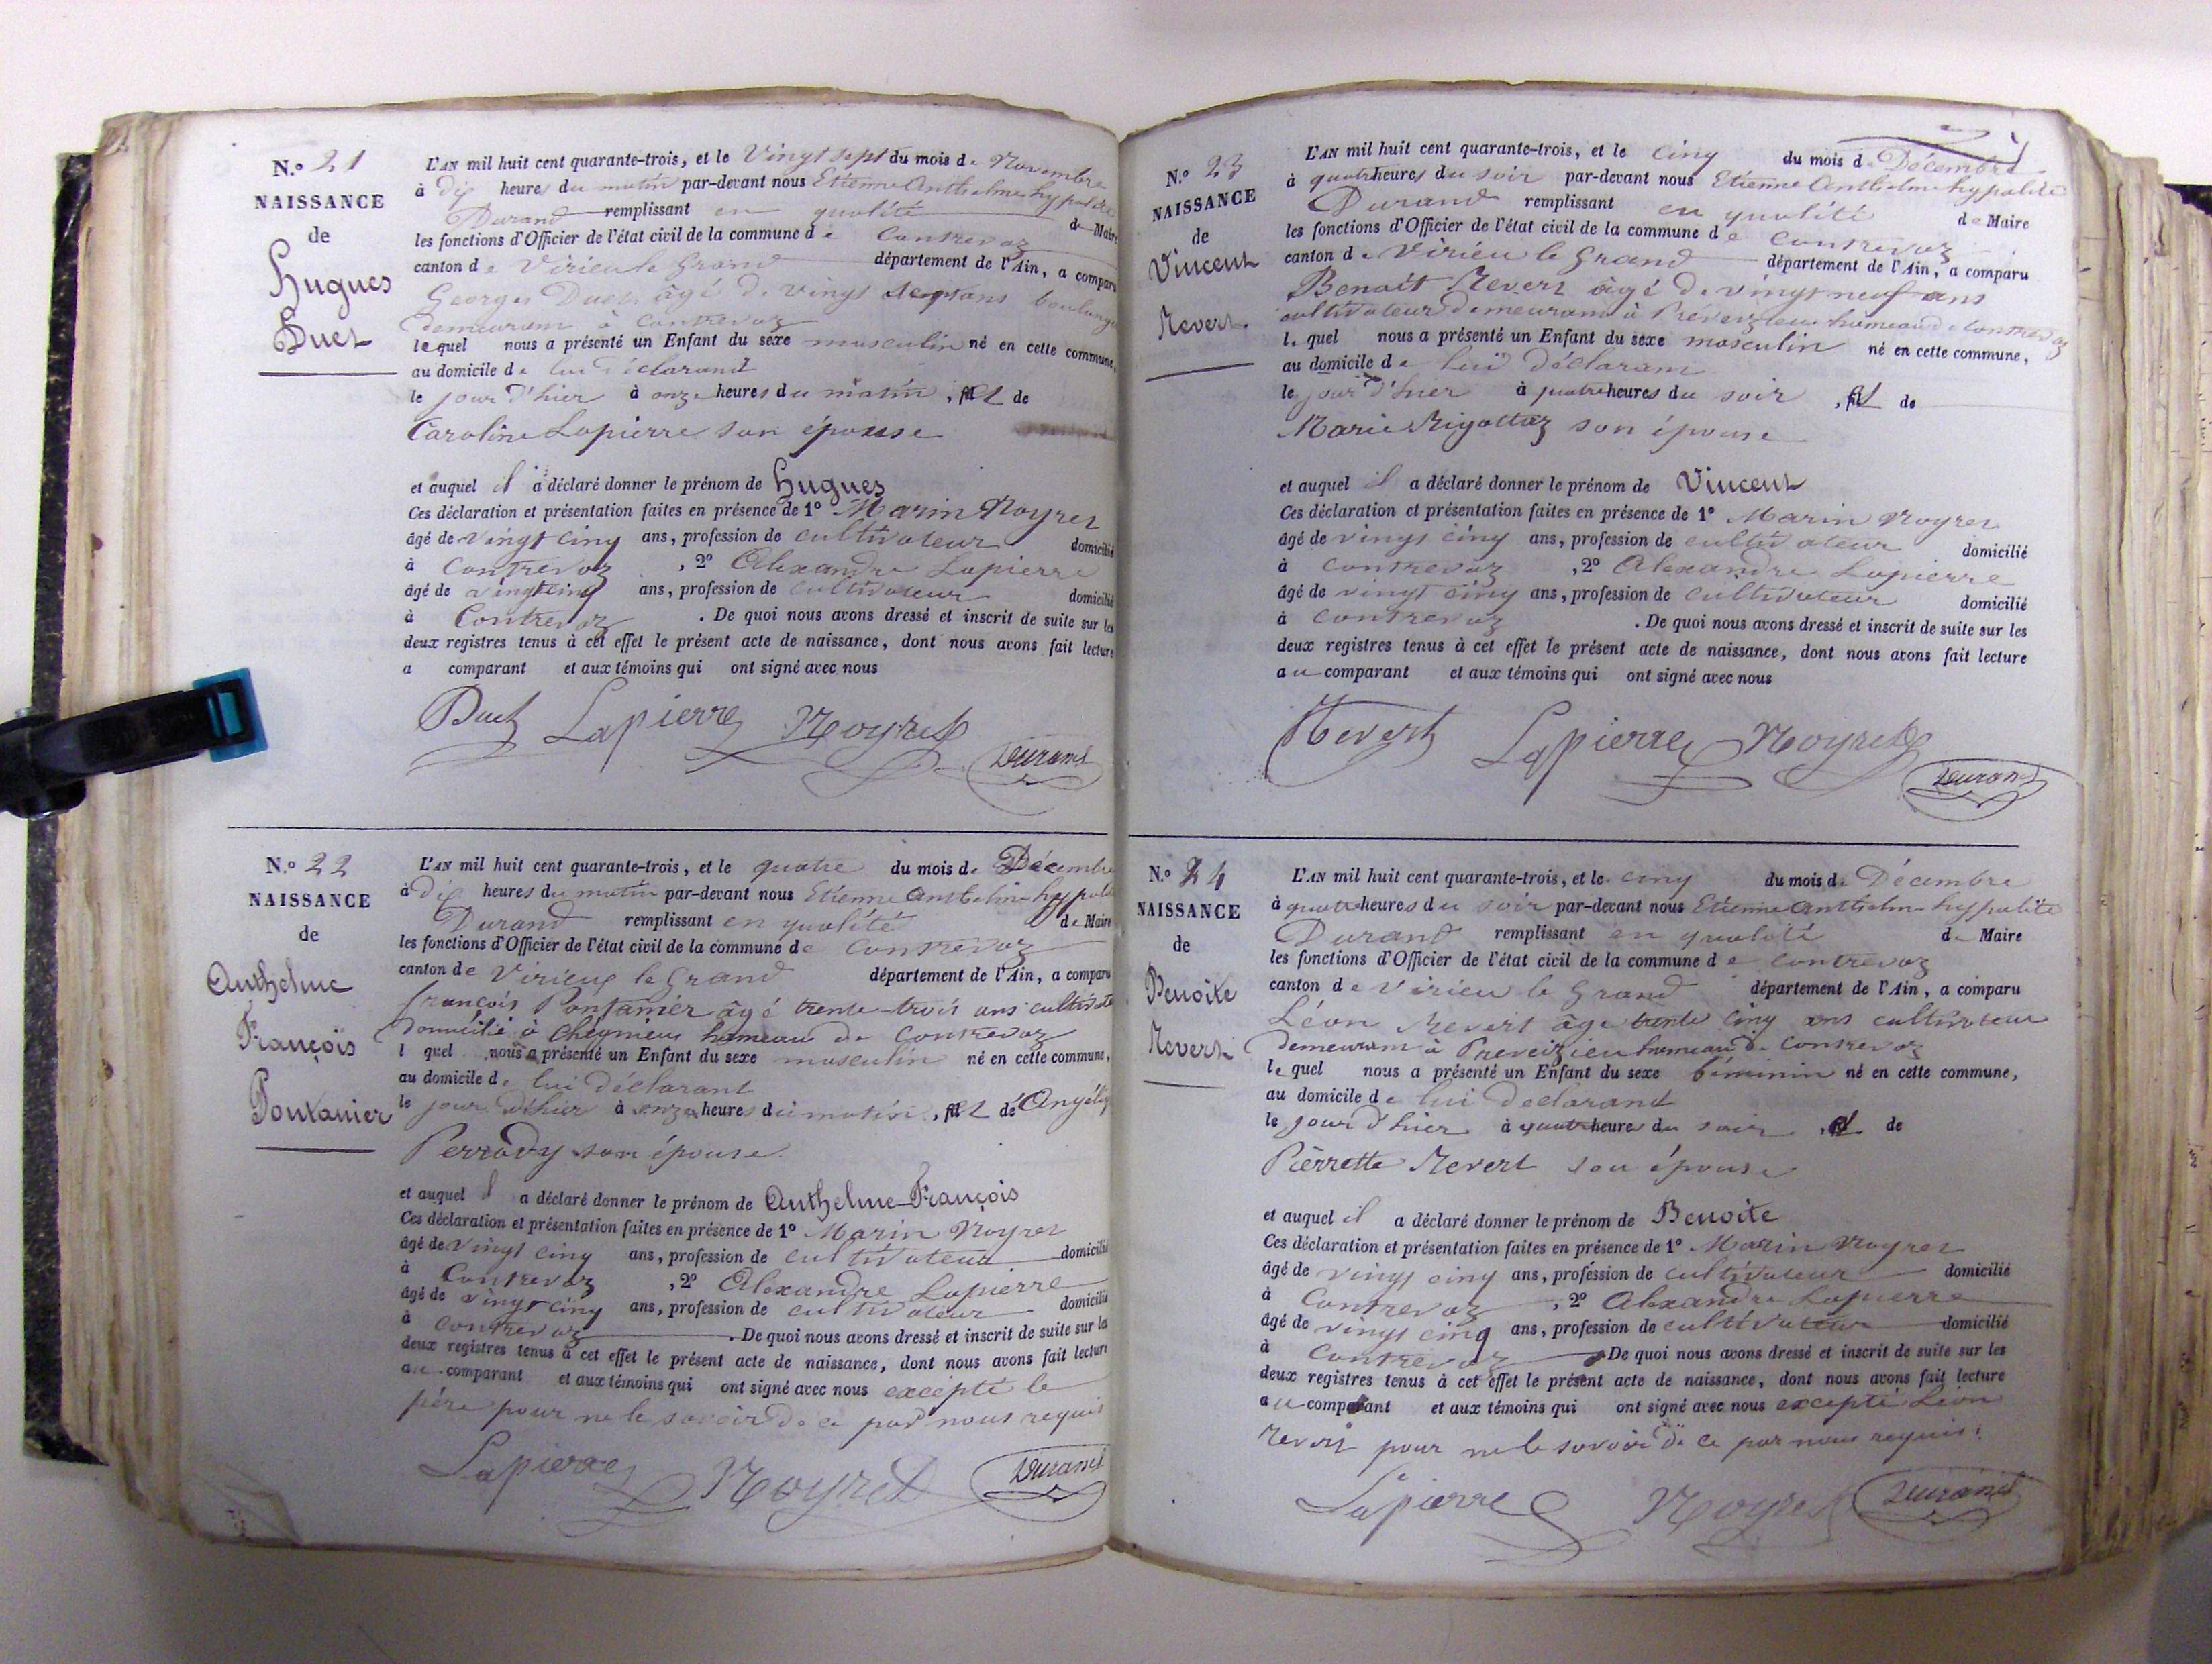 N.º 21
NAISSANCE
de
Hugues
Duet
L'AN mil huit cent quarante-trois, et le Vingt sept du mois de Novembre
à dix heures du matin par-devant nous Etienne Anthelme hypolite
Durand remplissant en qualité de Maire
les fonctions d'Officier de l'état civil de la commune de Contrevoz
canton de Virieu le Grand département de l'Ain, a comparu
Georges Duet âgé de vingt sept ans boulanger
demeurant à Contrevoz
lequel nous a présenté un Enfant du sexe masculin né en cette commune,
au domicile de lui déclarant
le jour d'hier à onze heures du matin, fil et de
Caroline Lapierre son épouse
et auquel il a déclaré donner le prénom de Hugues
Ces déclaration et présentation faites en présence de 1º Marin Noyret
âgé de vingt cinq ans, profession de cultivateur domicilié
à Contrevoz, 2º Alexandre Lapierre
âgé de vingt cinq ans, profession de cultivateur domicilié
à Contrevoz. De quoi nous avons dressé et inscrit de suite sur les
deux registres tenus à cet effet le présent acte de naissance, dont nous avons fait lecture
a comparant et aux témoins qui ont signé avec nous
Duet Lapierre Noyret
Durand
N.º 22
NAISSANCE
de
Anthelme
François
Pontanier
L'AN mil huit cent quarante-trois, et le quatre du mois de Décembre
à dix heures du matin par-devant nous Etienne Anthelme hypolite
Durand remplissant en qualité de Maire
les fonctions d'Officier de l'état civil de la commune de Contrevoz
canton de Virieux le Grand département de l'Ain, a comparu
françois Pontanier âgé trente-trois ans cultivateur
domicilié à Cheymieu hameau de Contrevoz
l quel nous a présenté un Enfant du sexe masculin né en cette commune,
au domicile de lui déclarant
le jour d'hier à onze heures du matin, fil et de Angéliq
Perrody son épouse
et auquel il a déclaré donner le prénom de Anthelme-François
Ces déclaration et présentation faites en présence de 1º Marin Noyret
âgé de vingt cinq ans, profession de cultivateur domicilié
à Contrevoz, 2º Alexandre Lapierre
âgé de vingt cinq ans, profession de cultivateur domicilié
à Contrevoz. De quoi nous avons dressé et inscrit de suite sur les
deux registres tenus à cet effet le présent acte de naissance, dont nous avons fait lecture
au comparant et aux témoins qui ont signé avec nous excépté le
père pour ne le savoir de ce par nous requis
Lapierre Noyret Durand
N.º 23
NAISSANCE
de
Vincent
Revert
L'AN mil huit cent quarante-trois, et le cinq du mois de Décembre
à quatre heures du soir par-devant nous Etienne Anthelme hypolite
Durand remplissant en qualité de Maire
les fonctions d'Officier de l'état civil de la commune de Contrevoz
canton de Virieu le Grand département de l'Ain, a comparu
Benoit Revert âgé de vingt neuf ans
cultivateur demeurant à Préveizieu hameau de Contrevoz
le quel nous a présenté un Enfant du sexe masculin né en cette commune,
au domicile de lui déclarant
le jour d'hier à quatre heures du soir, fil et de
Marie Rigottaz son épouse
et auquel il a déclaré donner le prénom de Vincent
Ces déclaration et présentation faites en présence de 1º Marin Noyret
âgé de vingt cinq ans, profession de cultivateur domicilié
à Contrevoz, 2º Alexandre Lapierre
âgé de vingt cinq ans, profession de cultivateur domicilié
à Contrevoz. De quoi nous avons dressé et inscrit de suite sur les
deux registres tenus à cet effet le présent acte de naissance, dont nous avons fait lecture
au comparant et aux témoins qui ont signé avec nous
Revert Lapierre Noyret
Durand
N.º 24
NAISSANCE
de
Benoite
Revert
L'AN mil huit cent quarante-trois, et le cinq du mois de Décembre
à quatre heures du soir par-devant nous Etienne Anthelme hypolite
Durand remplissant en qualité de Maire
les fonctions d'Officier de l'état civil de la commune de Contrevoz
canton de Virieu le Grand département de l'Ain, a comparu
Léon Revert âgé trente cinq ans cultivateur
demeurant à Preveizieu hameau de Contrevoz
le quel nous a présenté un Enfant du sexe féminin né en cette commune,
au domicile de lui declarant
le jour d'hier à quatre heures du soir, et de
Pierrette Revert son épouse
et auquel il a déclaré donner le prénom de Benoite
Ces déclaration et présentation faites en présence de 1º Marin Noyret
âgé de vingt cinq ans, profession de cultivateur domicilié
à Contrevoz, 2º Alexandre Lapierre
âgé de vingt cinq ans, profession de cultivateur domicilié
à Contrevoz De quoi nous avons dressé et inscrit de suite sur les
deux registres tenus à cet effet le présent acte de naissance, dont nous avons fait lecture
au comparant et aux témoins qui ont signé avec nous excepté Léon
Revert pour ne le savoir de ce par nous requis.
Lapierre Noyret Durand